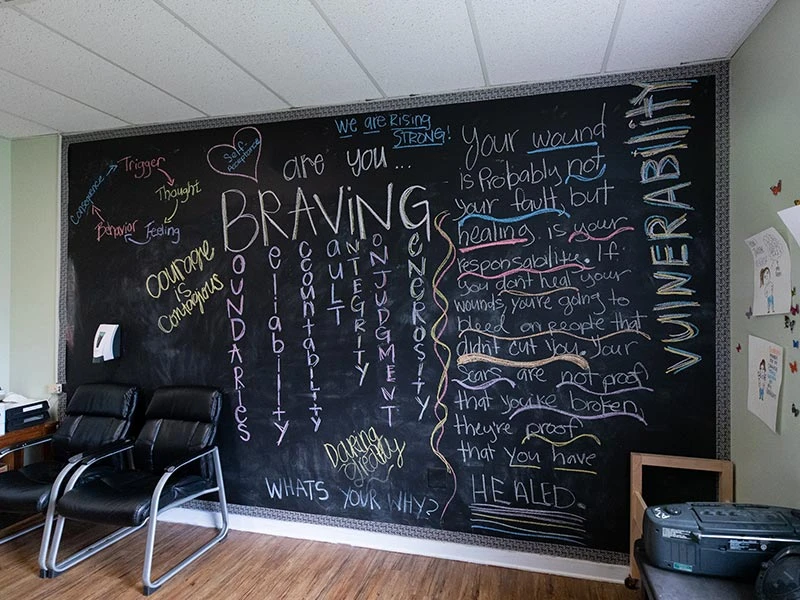 We are Rising
STRONG!
Self-
Acceptance
Trigger
Thought
Feeling
Behavior
Consequence
Courage
is
Contagious
are you...
BRAVING
OUNDARIES
eliability
ccountability
AULT
NTEGRITY
ONJUDGMENT
ENEROSITY
Daring
greatly
WHATS YOUR WHY?
Your wound
is Probably not
your fault, but
healing is your
responsability. If
you don't heal your
wounds, you're going to
bleed on people that
didn't cut you. Your
scars are not proof
that you're broken,
they're proof
that you have
HEALED.
VULNERABILITY